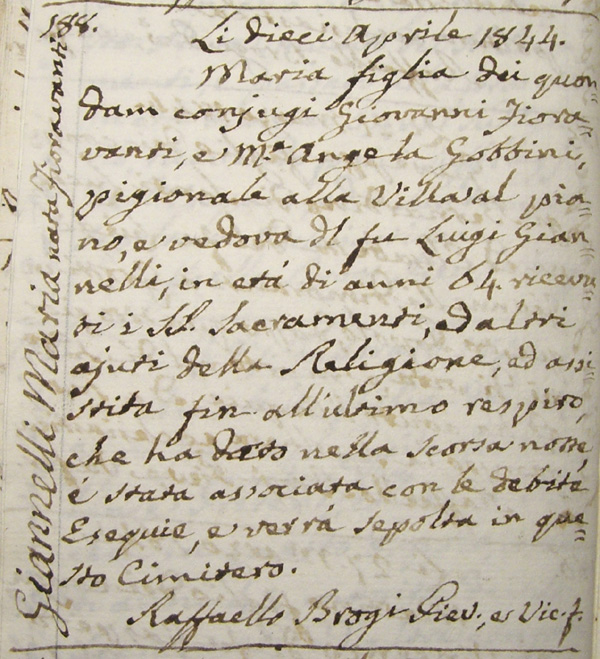 188.
Giannelli Maria nata Fioravanti
Li dieci Aprile 1844.
Maria figlia dei quon=
dam conjugi Giovanni Fiora=
vanti, e M.ª Angela Gobbini,
pigionale alla Villa al pia=
no, e vedova dl fu Luigi Gian=
nelli, in etá di anni 64. ricevu=
ti i SS. Sacramenti, ed altri
ajuti della Religione, ed assi=
stita fin all'ultimo respiro,
che ha dato nella scorsa notte,
é stata associata con le debite
Esequie, e verrá sepolta in que=
sto Cimitero.
Raffaello Brogi Piev., e Vic. f.